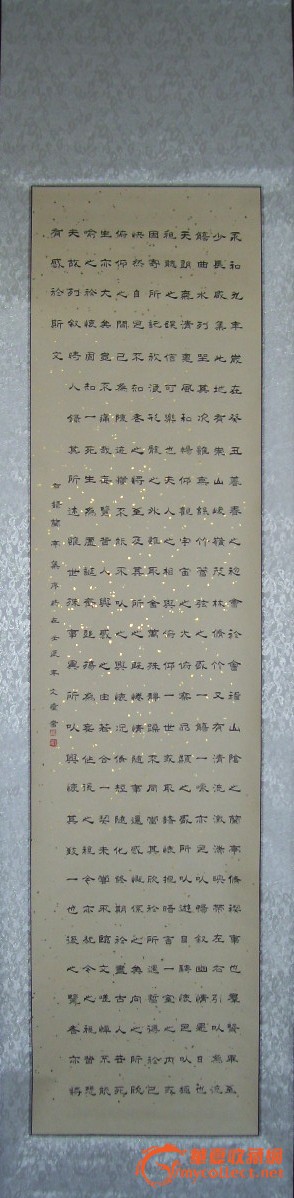 永和九年歲在癸丑暮春之初會於會稽山陰之蘭亭脩禊事也羣賢畢至
少長咸集此地有崇山峻嶺茂林脩竹又有清流激湍映帶左右引以為流
觴曲水列坐其次雖無絲竹管弦之盛一觴一詠亦足以暢叙幽情是日也
天朗氣清惠風和暢仰觀宇宙之大俯察品類之盛所以遊目騁懷足以極
視聽之娛信可樂也夫人之相與俯仰一世或取諸懷抱悟言一室之內或
因寄所託放浪形骸之外雖取舍萬殊靜躁不同當其欣於所遇暫得於己
快然自足不知老之將至及其所之既惓情隨事遷感慨係之矣向之所欣
俯仰之間已為陳迹猶不能不以之興懷況脩短隨化終期於盡古人云死
生亦大矣豈不痛哉每覽昔人興感之由若合一契未嘗不臨文嗟悼不能
喻之於懷固知一死生為虛誕齊彭殤為妄作後之視今亦猶今之視昔悲
夫故列叙時人錄其所述雖世殊事異所以興懷其致一也後之覽者亦將
有感於斯文
錄蘭亭集序
華夏收藏網
mycollect.net